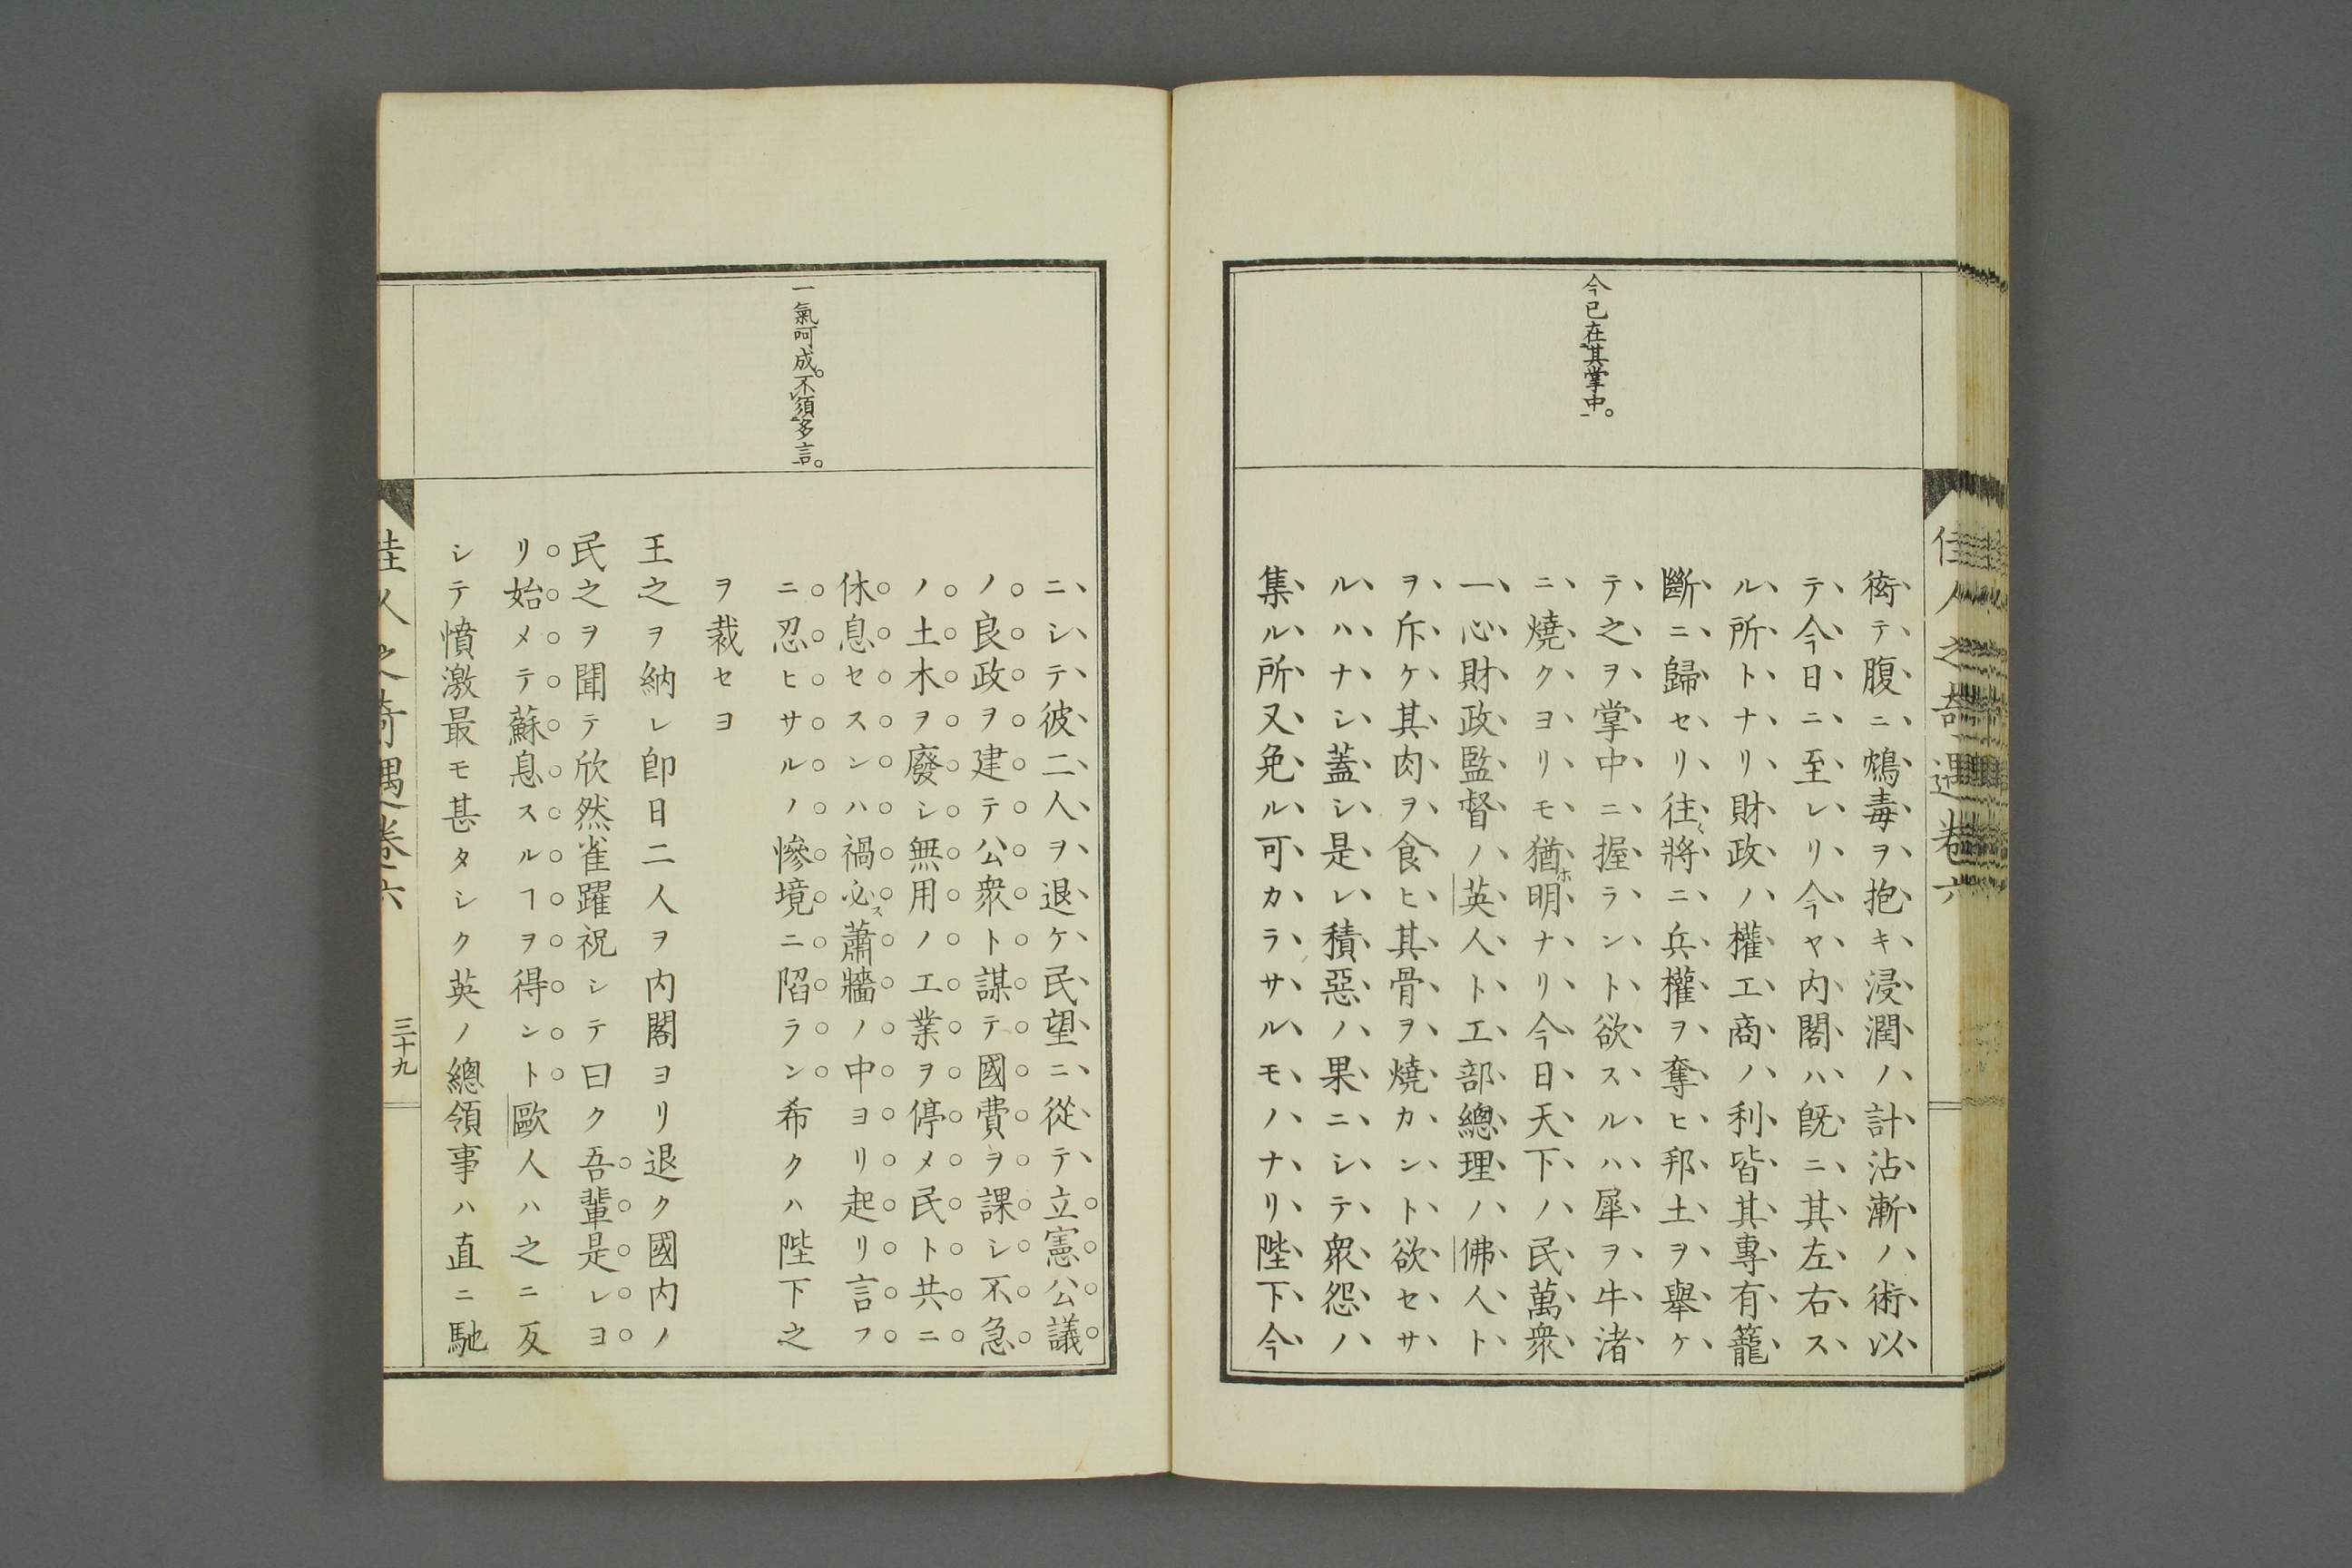 佳人之奇遇卷六
今已在其掌中。
衒テ腹ニ鴆毒ヲ抱キ浸潤ノ計沾漸ノ術以
テ今日ニ至レリ今ヤ内閣ハ既ニ其左右ス
ル所トナリ財政ノ權工商ノ利皆其專有籠
斷ニ歸セリ往々將ニ兵權ヲ奪ヒ邦土ヲ擧ケ
テ之ヲ掌中ニ握ラント欲スルハ犀ヲ牛渚
ニ燒クヨリモ猶ホ明ナリ今日天下ノ民萬衆
一心財政監督ノ英人ト工部總理ノ佛人ト
ヲ斥ケ其肉ヲ食ヒ其骨ヲ燒カント欲セサ
ルハナシ蓋シ是レ積惡ノ果ニシテ衆怨ノ
集ル所又免ル可カラサルモノナリ陛下今
一氣呵成。不須多言。
ニシテ彼二人ヲ退ケ民望ニ從テ立憲公議
ノ良政ヲ建テ公衆ト謀テ國費ヲ課シ不急
ノ土木ヲ廢シ無用ノ工業ヲ停メ民ト共ニ
休息セスンハ禍必ス蕭牆ノ中ヨリ起リ言フ
ニ忍ヒサルノ慘境ニ陷ラン希クハ陛下之
ヲ裁セヨ
王之ヲ納レ即日二人ヲ内閣ヨリ退ク國内ノ
民之ヲ聞テ欣然雀躍祝シテ曰ク吾輩是レヨ
リ始メテ蘇息スルヿヲ得ント歐人ハ之ニ反
シテ憤激最モ甚タシク英ノ總領事ハ直ニ馳
佳人之奇遇卷六
三十九